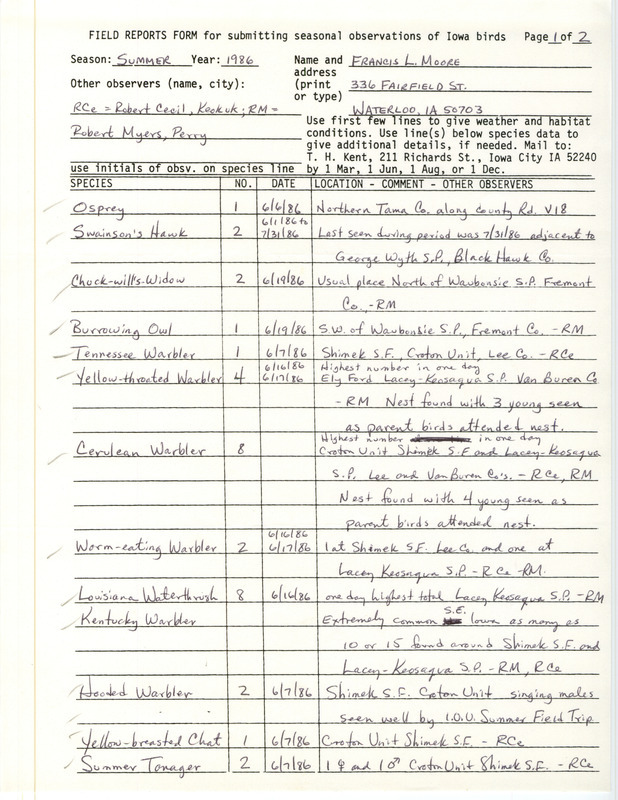 FIELD REPORTS FORM for submitting seasonal observations of Iowa birds Page 1 of 2
Season: SUMMER Year: 1986 Name and FRANCIS L. MOORE
address
Other observers (name, city): (print 336 FAIRFIELD ST.
or type)
RCe = Robert Cecil, Keokuk; RM = WATERLOO, IA 50703
Robert Myers, Perry
Use first few lines to give weather and habitat
conditions. Use line(s) below species data to
give additional details, if needed. Mail to:
T. H. Kent, 211 Richards St., Iowa City IA 52240
use initials of obsv. on species line by 1 Mar, 1 Jun, 1 Aug, or 1 Dec.
SPECIES NO. DATE LOCATION - COMMENT - OTHER OBSERVERS
Osprey 1 6/6/86 Northern Tama Co. along county Rd. V18
Swainson's Hawk 2 6/1/86 to 7/31/86 Last seen during period was 7/31/86 adjacent to
George Wyth S.P., Black Hawk Co.
Chuck-will's-Widow 2 6/19/86 Usual place North of Waubonsie S.P. Fremont
Co. - RM
Burrowing Owl 1 6/19/86 S.W. of Waubonsie S.P., Fremont Co. - RM
Tennessee Warbler 1 6/7/86 Shimek S.F., Croton Unit, Lee Co. - RCe
Yellow-throated Warbler 4 6/16/86 6/17/86 Highest number in one day
Ely Ford Lacey-Keosaqua S.P. Van Buren Co
- RM Nest found with 3 young seen
as parent birds attended nest.
Cerulean Warbler 8 Highest number in one day
Croton Unit Shimek S.F. and Lacey-Keosaqua
S.P. Lee and Van Buren Co's. - RCe, RM
Nest found with 4 young seen as
parent birds attended nest.
Worm-eating Warbler 2 6/16/86 6/17/86 1 at Shimek S.F. Lee Co. and one at
Lacey Keosaqua S.P. - RCe - RM.
Louisiana Waterthrush 8 6/16/86 one day highest total Lacey Keosaqua S.P. - RM
Kentucky Warbler Extremely common S.E. Iowa as many as
10 or 15 found around Shimek S.F. and
Lacey-Keosaqua S.P. - RM, RCe
Hooded Warbler 2 6/7/86 Shimek S.F. Croton Unit singing males
seen well by I.O.U. Summer Field Trip
Yellow-breasted Chat 1 6/7/86 Croton Unit Shimek S.F. - RCe
Summer Tanager 2 6/7/86 1 ♀ and 1 ♂ Croton Unit Shimek S.F. - RCe